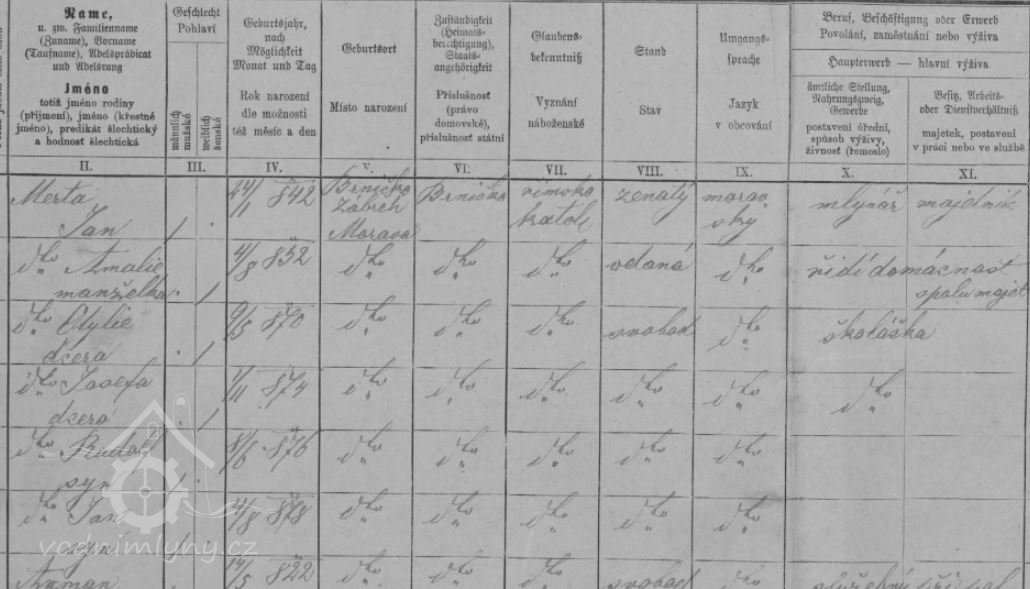 Name,
u. zw. Familienname
(Zuname), Vorname
(Taufname), Adelsprädicat
und Adelsrang
Jméno
totiž jméno rodiny
(příjmení), jméno (křestné
jméno), predikát šlechtický
a hodnost šlechtická
Geschlecht
Pohlaví
männlich
mužské
weiblich
ženské
Geburtsjahr,
nach
Möglichkeit
Monat und Tag
Rok narození
dle možnosti
též měsíc a den
Geburtsort
Místo narození
Zuständigkeit
(Heimats-
berechtigung),
Staats-
angehörigkeit
Příslušnost
(právo
domovské),
příslušnost státní
Glaubens-
bekenntniß
Vyznání
náboženské
Stand
Stav
Umgangs-
sprache
Jazyk
v obcování
Beruf, Beschäftigung oder Erwerb
Povolání, zaměstnání nebo výživa
Haupterwerb — hlavní výživa
ämtliche Stellung,
Nahrungszweig,
Gewerbe
postavení úřední,
spůsob výživy,
živnost (řemeslo)
Besitz, Arbeits-
oder Dienstverhältniß
majetek, postavení
v práci nebo ve službě
II. III. IV. V. VI. VII. VIII. IX. X. XI.
Merta 24/1 842 Brníčko Brníčko římsko ženatý morav mlynář majetník
Jan Zábřeh katol sky
Morava
dto Amalie 4/8 852 dto dto dto vdaná dto řídí domácnost
manželka spolumajet
dto 9/5 870 dto dto dto svobod dto školáčka
dcera
dto Josefa 1/11 874 dto dto dto dto dto dto
dcera
dto Rudolf 8/6 876 dto dto dto dto dto
syn
dto Jan 878 dto dto dto dto dto
syn
vodnimlyny.cz
822 dto dto dto svobod dto